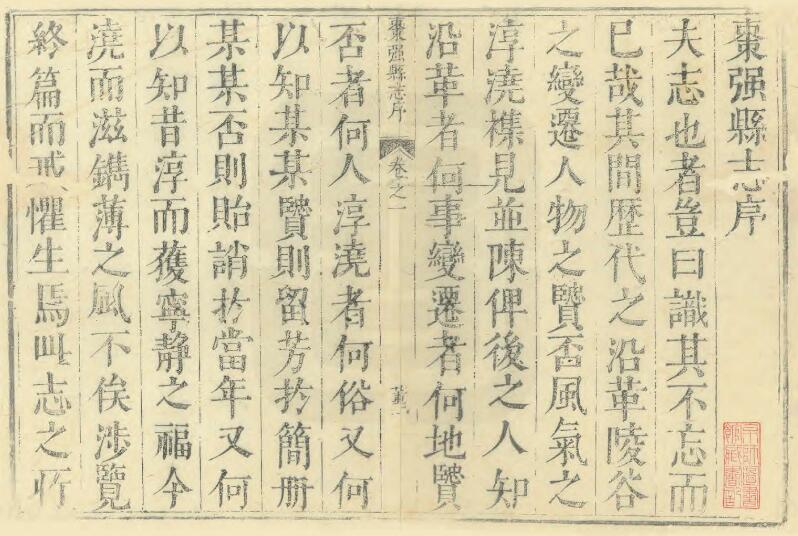 棗强縣志序
夫志也者豈曰識其不忘而
已哉其間歷代之沿革陵谷
之變遷人物之贒否風氣之
淳澆襍見並陳俾後之人知
沿革者何事變遷者何地贒
棗强縣志序 卷之一
否者何人淳澆者何俗又何
以知某某贒則留芳扵簡册
某某否則貽誚扵當年又何
以知昔淳而獲寧静之福今
澆而滋鐫薄之風不俟涉覽
終篇而戒懼生焉此志之所